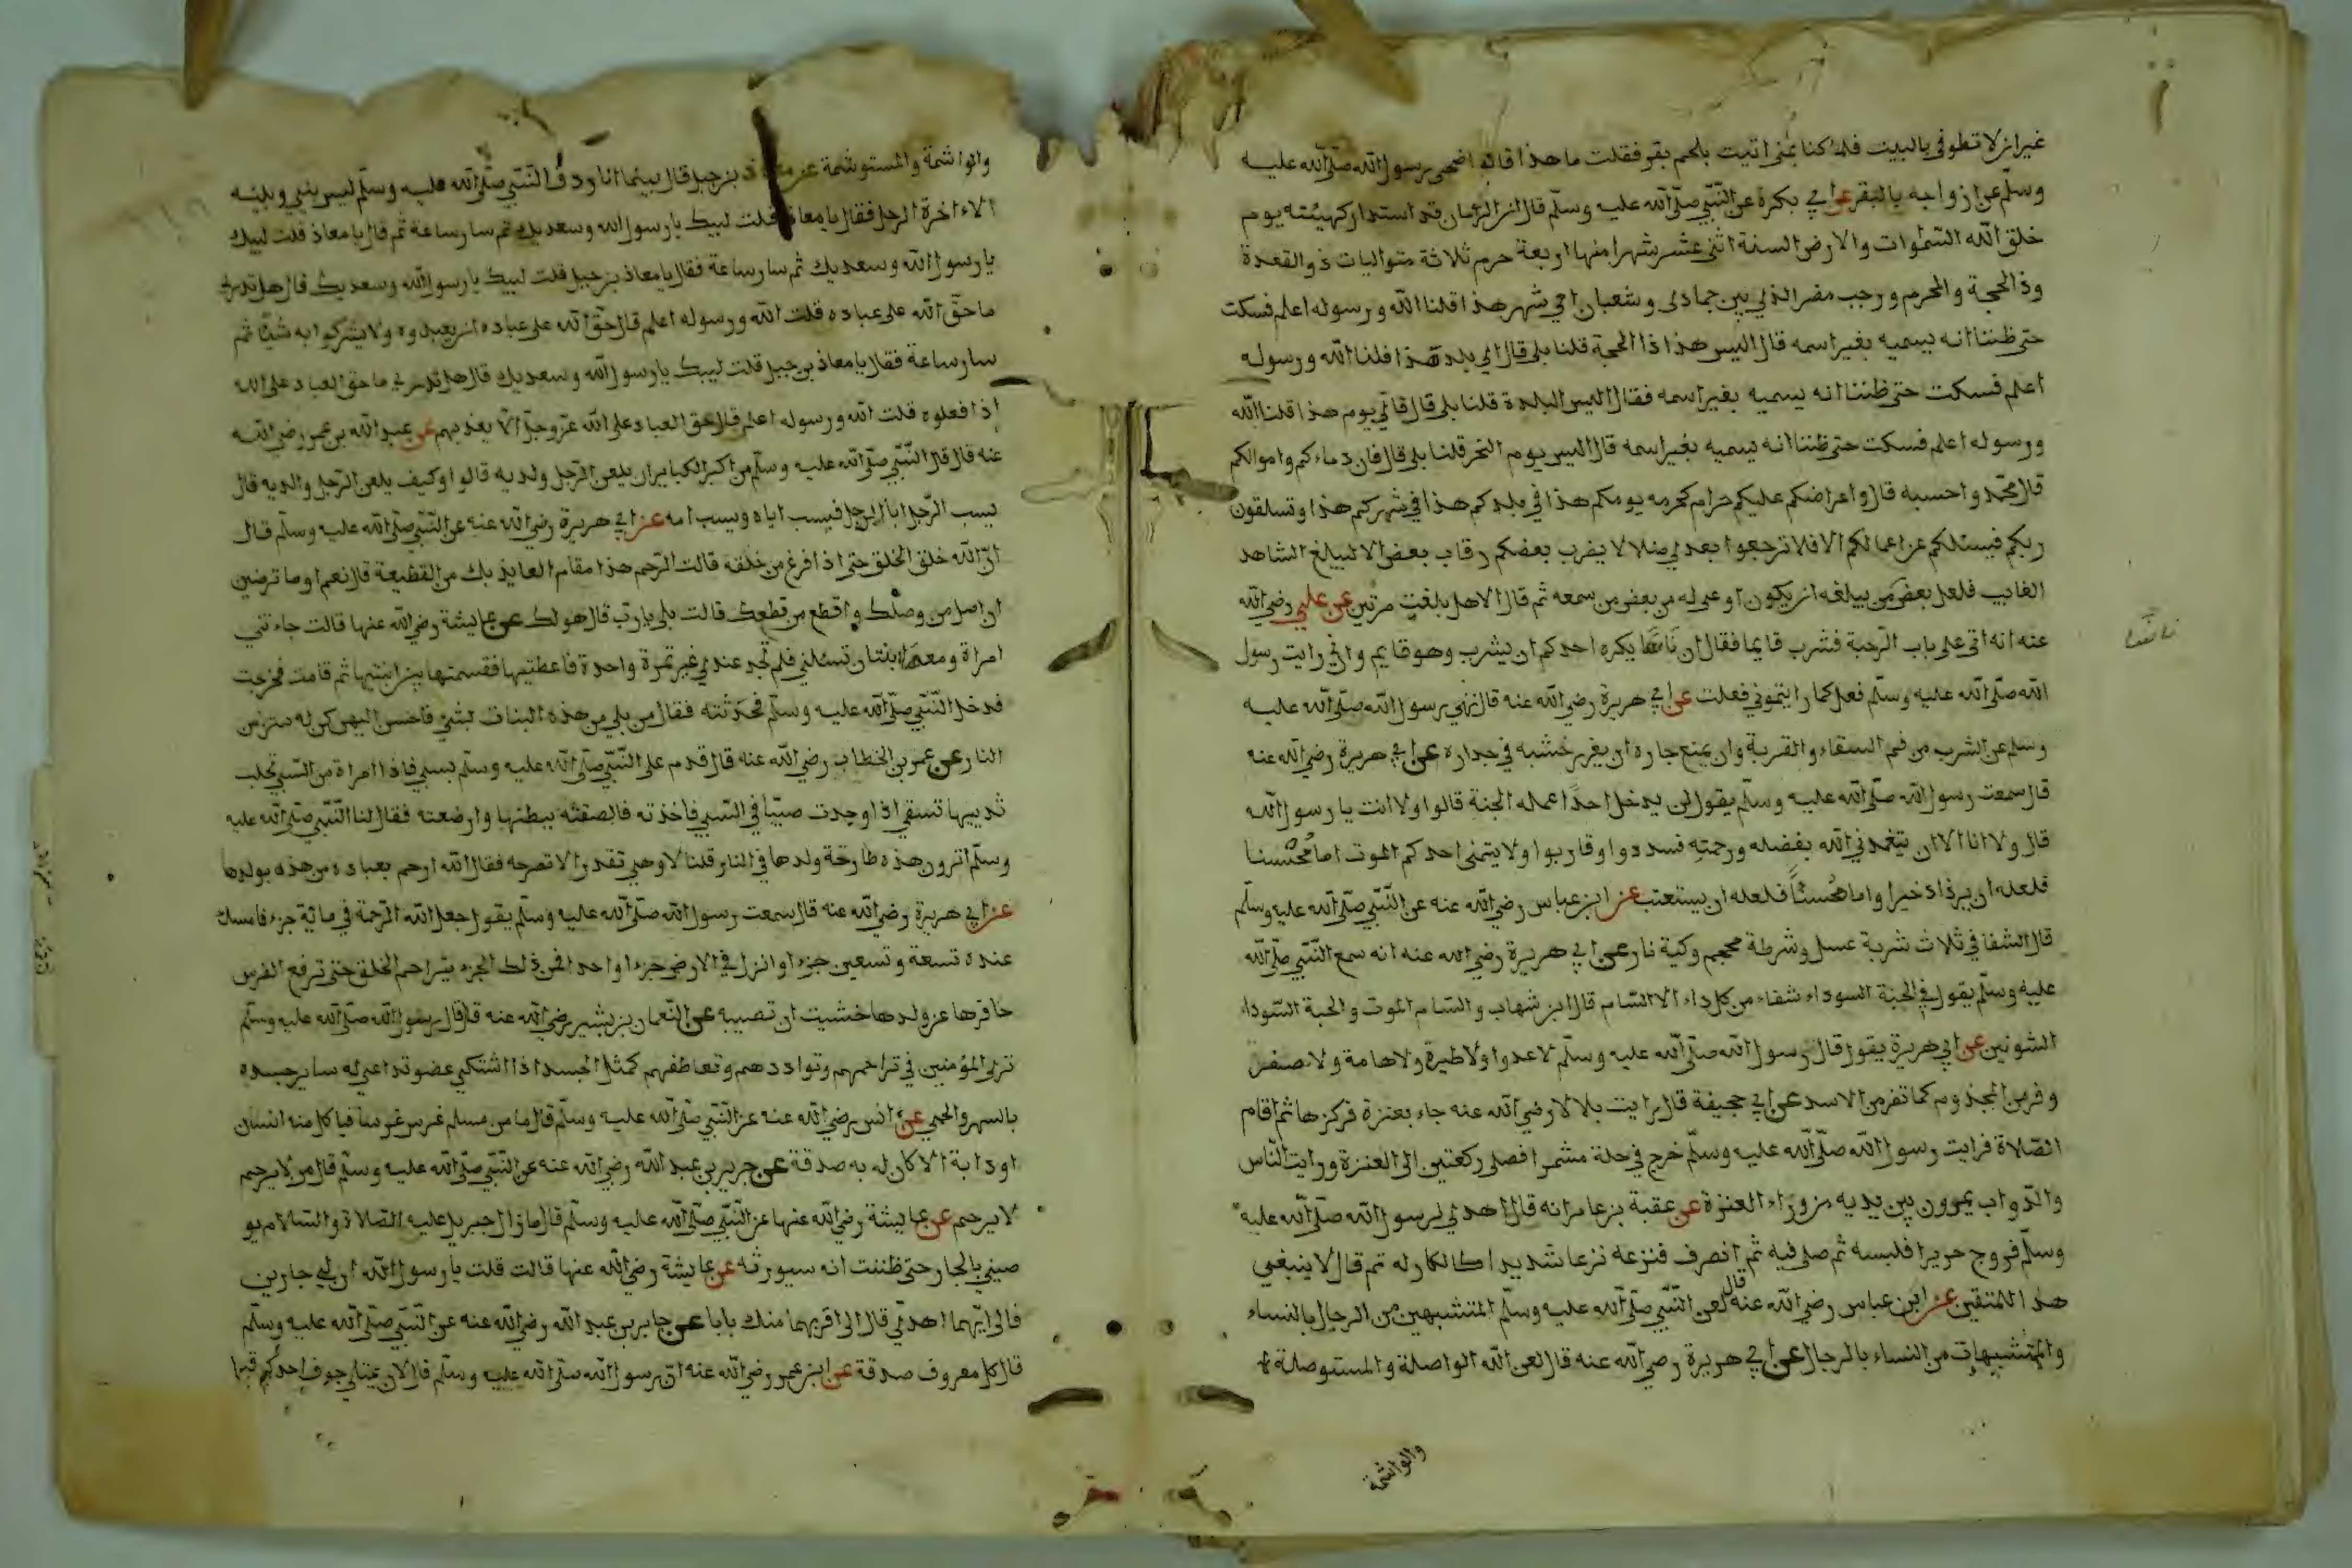 غير ان لا تطوفي بالبيت فلما كنا بمنى اتيت بلحم بقر فقلت ما هذا قالوا ضحى رسول الله صلى الله عليه
وسلم عن ازواجه بالبقر عن ابي بكرة عن النبي صلى الله عليه وسلم قال ان الزمان قد استدار كهيئته يوم
خلق الله السموات والارض السنة اثنى عشر شهرا منها اربعة حرم ثلاثة متواليات ذو القعدة
وذ الحجة والمحرم ورجب مضر الذي بين جمادى وشعبان اي شهر هذا قلنا الله ورسوله اعلم فسكت
حتى ظننا انه يسميه بغير اسمه قال اليس هذا ذا الحجة قلنا بلى قال اي بلد هذا قلنا الله ورسوله
اعلم فسكت حتى ظننا انه يسميه بغير اسمه فقال اليس البلدة قلنا بلى قال فاي يوم هذا قلنا الله
ورسوله اعلم فسكت حتى ظننا انه يسميه بغير اسمه قال اليس يوم النحر قلنا بلى قال فان دماءكم واموالكم
قال محمد واحسبه قال واعراضكم عليكم حرام كحرمه يومكم هذا في بلدكم هذا في شهركم هذا وتسلقون
ربكم فيسئلكم عن اعمالكم الا فلا ترجعوا بعدي ضلالا يضرب بعضكم رقاب بعض الا ليبلغ الشاهد
الغايب فلعل بعض من يبلغه ان يكون اوعى له من بعض من سمعه ثم قال الا هل بلغت مرتين عن علي رضي الله
عنه انه اتى على باب الرحبة فشرب قايما فقال ان ناسا يكره احدكم ان يشرب وهو قايم واني رايت رسول
الله صلى الله عليه وسلم فعل كما رايتموني فعلت عن ابي هريرة رضي الله عنه قال نهى رسول الله صلى الله عليه
وسلم عن الشرب من فم السقاء والقربة وان يمنع جاره ان يغرز خشبه في جداره عن ابي هريرة رضي الله عنه
قال سمعت رسول الله صلى الله عليه وسلم يقول لن يدخل احدا عمله الجنة قالوا ولا انت يا رسول الله
قال ولا انا الا ان يتغمدني الله بفضله ورحمته فسددوا وقاربوا ولا يتمنى احدكم الموت اما محسنا
فلعله ان يزداد خيرا واما مسئا فلعله ان يستعتب عن ابن عباس رضي الله عنه عن النبي صلى الله عليه وسلم
قال الشفا في ثلاث شربة عسل وشرطة محجم وكية نار عن ابي هريرة رضي الله عنه انه سمع النبي صلى الله
عليه وسلم يقول في الحبة السوداء شفاء من كل داء الا السام قال ابن شهاب والسام الموت والحبة السوداء
الشونيز عن ابي هريرة يقول قال رسول الله صلى الله عليه وسلم لا عدوا ولا طيرة ولا هامة ولا صفر
وفر من المجذوم كما تفر من الاسد عن ابي جحيفة قال رايت بلالا رضي الله عنه جاء بعنزة فركزها ثم اقام
الصلاة فرايت رسول الله صلى الله عليه وسلم خرج في حلة مشمرا فصلى ركعتين الى العنزة ورايت الناس
والدواب يمرون بين يديه من وراء العنزة عن عقبة بن عامر انه قال اهدي لرسول الله صلى الله عليه
وسلم فروج حريرا فلبسه ثم صلى فيه ثم انصرف فنزعه نزعا شديدا كالكاره له ثم قال لا ينبغي
هذا للمتقين عن ابن عباس رضي الله عنه قال لعن النبي صلى الله عليه وسلم المتشبهين من الرجال بالنساء
والمتشبهات من النساء بالرجال عن ابي هريرة رضي الله عنه قال لعن الله الواصلة والمستوصلة
والواشمة
والواشمة والمستوشمة عن معاذ بن جبل قال بينما انا ردف النبي صلى الله عليه وسلم ليس بيني وبينه
الا اخرة الرحل فقال يا معاذ قلت لبيك يا رسول الله وسعديك ثم سار ساعة ثم قال يا معاذ قلت لبيك
يا رسول الله وسعديك ثم سار ساعة فقال يا معاذ بن جبل قلت لبيك يا رسول الله وسعديك قال هل تدري
ما حق الله على عباده قلت الله ورسوله اعلم قال حق الله على عباده ان يعبدوه ولا يشركوا به شيئا ثم
سار ساعة فقال يا معاذ بن جبل قلت لبيك يا رسول الله وسعديك قال هل تدري ما حق العباد على الله
اذا فعلوه قلت الله ورسوله اعلم قال حق العباد على الله عز وجل الا يعذبهم عن عبد الله بن عمر رضي الله
عنه قال قال النبي صلى الله عليه وسلم من اكبر الكبايران يلعن الرجل ولديه قالوا وكيف يلعن الرجل والديه قال
يسب الرجل ابا الرجل فيسب اباه ويسب امه عن ابي هريرة رضي الله عنه عن النبي صلى الله عليه وسلم قال
ان الله خلق الخلق حتى اذا فرغ من خلقه قالت الرحم هذا مقام العايذ بك من القطيعة قال نعم اوما ترضين
ان اصل من وصلك واقطع من قطعك قالت بلى يا رب قال هو لك عن عايشة رضي الله عنها قالت جاءتني
امراة ومعها ابنتان تسئلني فلم تجد عندي غير تمرة واحدة فاعطيتها فقسمتها بين ابنتيها ثم قامت فخرجت
فدخل النبي صلى الله عليه وسلم فحدثته فقال من بلي من هذه البنات بشئ فاحسن اليهن كن له ستر من
النار عن عمر بن الخطاب رضي الله عنه قال قدم على النبي صلى الله عليه وسلم بسبي فاذا امراة من السبي تحلب
ثدييها تسقي اذا وجدت صبيا في السبي فاخذته فالصقته ببطنها وارضعته فقال لنا النبي صلى الله عليه
وسلم اترون هذه طارحة ولدها في النار قلنا لا وهي تقدر الا تطرحه فقال الله ارحم بعباده من هذه بولدها
عن ابي هريرة رضي الله عنه قال سمعت رسول الله صلى الله عليه وسلم يقول جعل الله الرحمة في مائة جزء فامسك
عنده تسعة وتسعين جزءا وانزل في الارض جزءا واحدا فمن ذلك الجزء يتراحم الخلق حتى ترفع الفرس
حافرها عن ولدها خشيت ان تصيبه عن النعمان بن بشير رضي الله عنه قال قال رسول الله صلى الله عليه وسلم
ترى المؤمنين في تراحمهم وتواددهم وتعاطفهم كمثل الجسد اذا اشتكى عضو تداعى له ساير جسده
بالسهر والحمى عن انس رضي الله عنه عن النبي صلى الله عليه وسلم قال ما من مسلم غرس غرسا فياكل منه انسان
او دابة الا كان له به صدقة عن جرير بن عبد الله رضي الله عنه عن النبي صلى الله عليه وسلم قال من لا يرحم
لا يرحم عن عايشة رضي الله عنها عن النبي صلى الله عليه وسلم قال ما زال جبريل عليه الصلاة والسلام يو
صيني بالجار حتى ظننت انه سيورثه عن عايشة رضي الله عنها قالت قلت يا رسول الله ان لي جارين
فالى ايهما اهدي قال الى اقربهما منك بابا عن جابر بن عبد الله رضي الله عنه عن النبي صلى الله عليه وسلم
قال كل معروف صدقة عن ابن عمر رضي الله عنه ان رسول الله صلى الله عليه وسلم قال لان يمتلي جوف احدكم قيحا